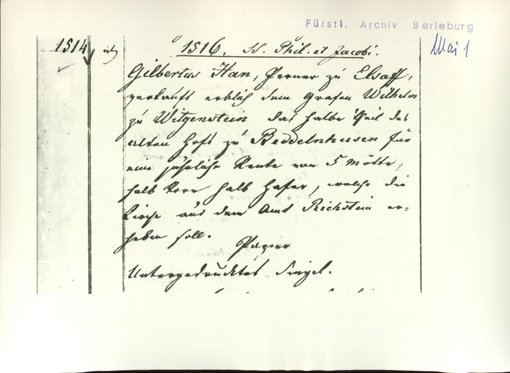 Fürstl. Archiv Berleburg
Mai 1
1514
1516. SS. Phil. et Jacobi.
Gilbertus Han, Perner zu Elsaff,
verkauft erblich dem Grafen Wilhelm
zu Witgenstein das halbe Theil des
alten Hofs zu Beddelnhusen für
eine jährliche Rente von 5 Mötte,
halb Korn halb Hafer, welche die
Kirche aus dem Amt Richstein er-
heben soll.
Papier
Untergedrucktes Siegel.